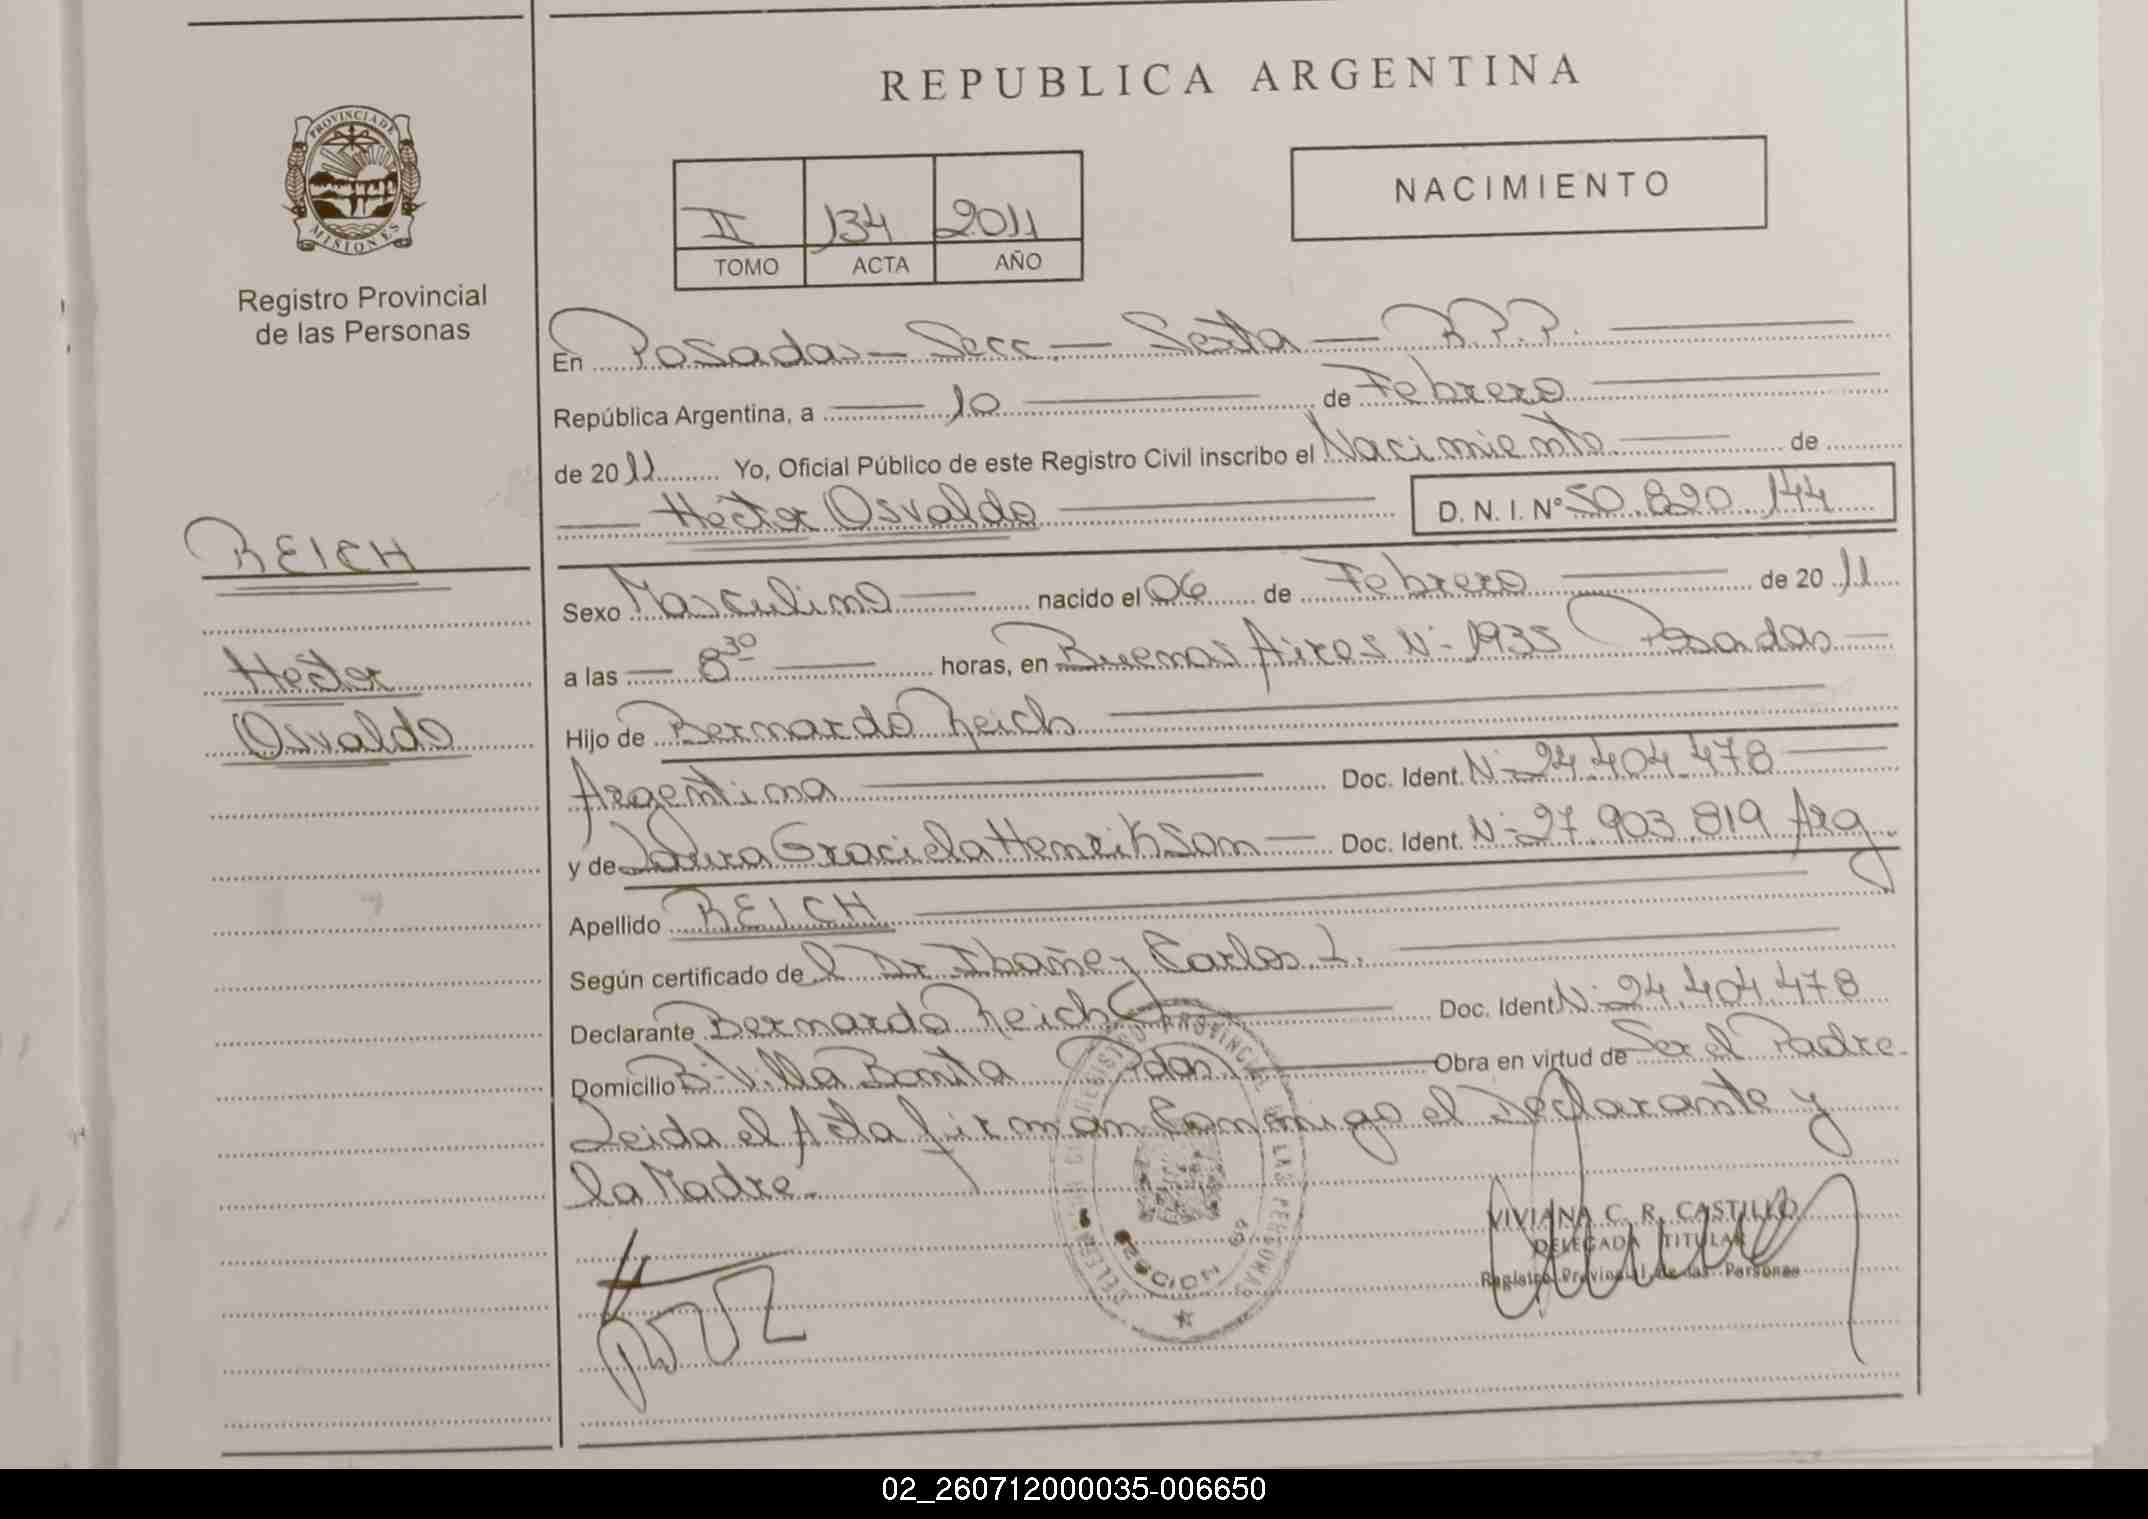 REPUBLICA ARGENTINA
PROVINCIA DE
MISIONES
Registro Provincial
de las Personas
II 134 2011
TOMO ACTA AÑO
NACIMIENTO
En Posadas - Secc. - Sexta - R.P.P.
República Argentina, a 10 de Febrero
de 2011 Yo, Oficial Público de este Registro Civil inscribo el Nacimiento de
Héctor Osvaldo D. N. I. Nº 50.820.144
REICH
Héctor
Osvaldo
Sexo Masculino nacido el 06 de Febrero de 2011
a las 8 30 horas, en Buenos Aires Nº 1935 Posadas
Hijo de Bernardo Reich
Argentina Doc. Ident. Nº 24.404.478
y de Laura Graciela Henrikson Doc. Ident. Nº 27.903.819 Arg
Apellido REICH
Según certificado del Dr Ibañez Carlos L.
Declarante Bernardo Reich Doc. Ident Nº 24.404.478
Domicilio Bº Villa Bonita Pdas Obra en virtud de Ser el Padre.
Leida el Acta firman Conmigo el Declarante y
la Madre.
VIVIANA C. R. CASTILLO
DELEGADA TITULAR
Registro Provincial de las Personas
02_260712000035-006650